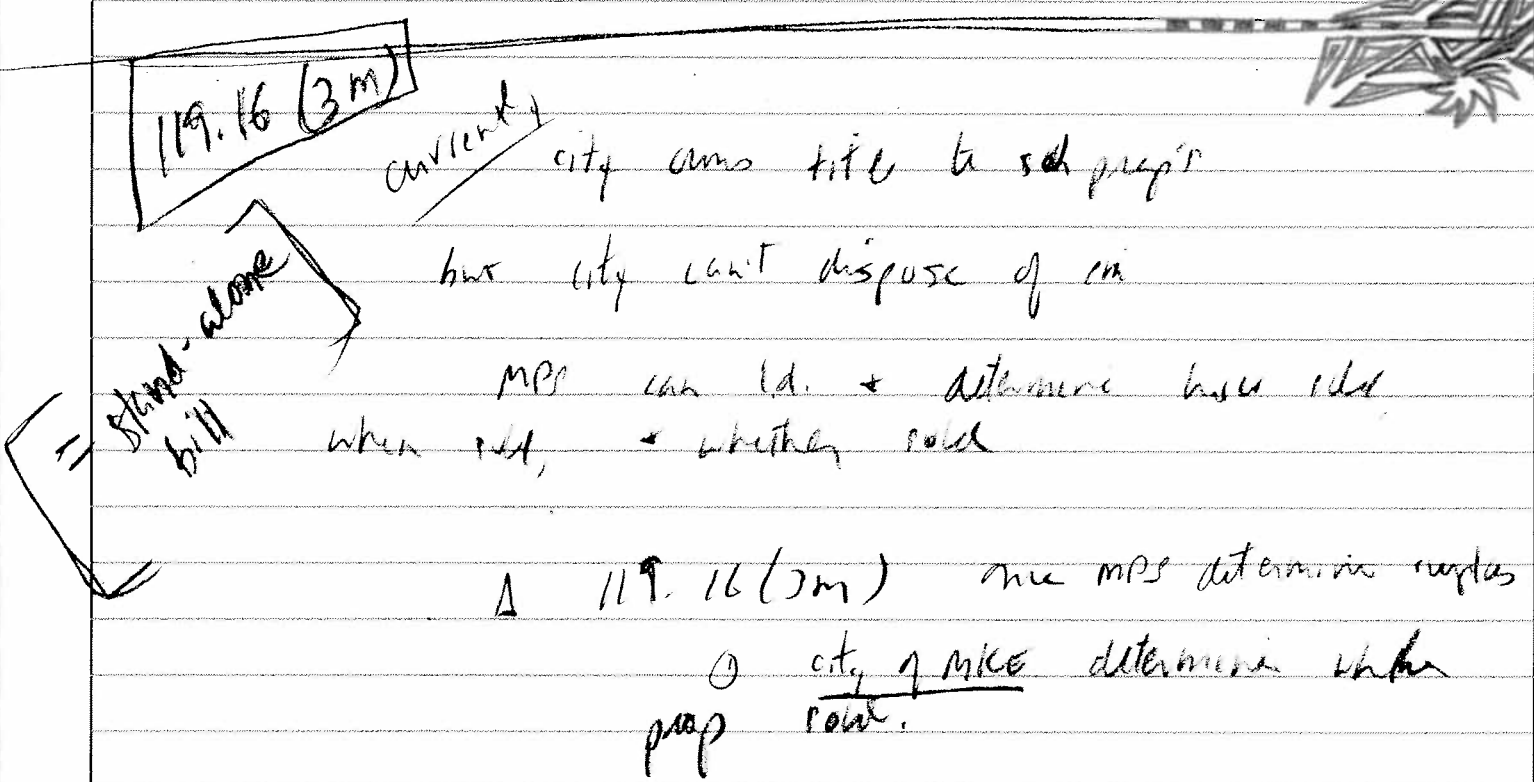 119.16 (3m)
currently city owns title to sch prop's
but city can't dispose of em
= stand-alone
bill
MPS can i.d. + determine how sold
when sold, + whether sold
Δ 119.16(3m) once MPS determine surplus
① city of MKE determine whether
prop sold.